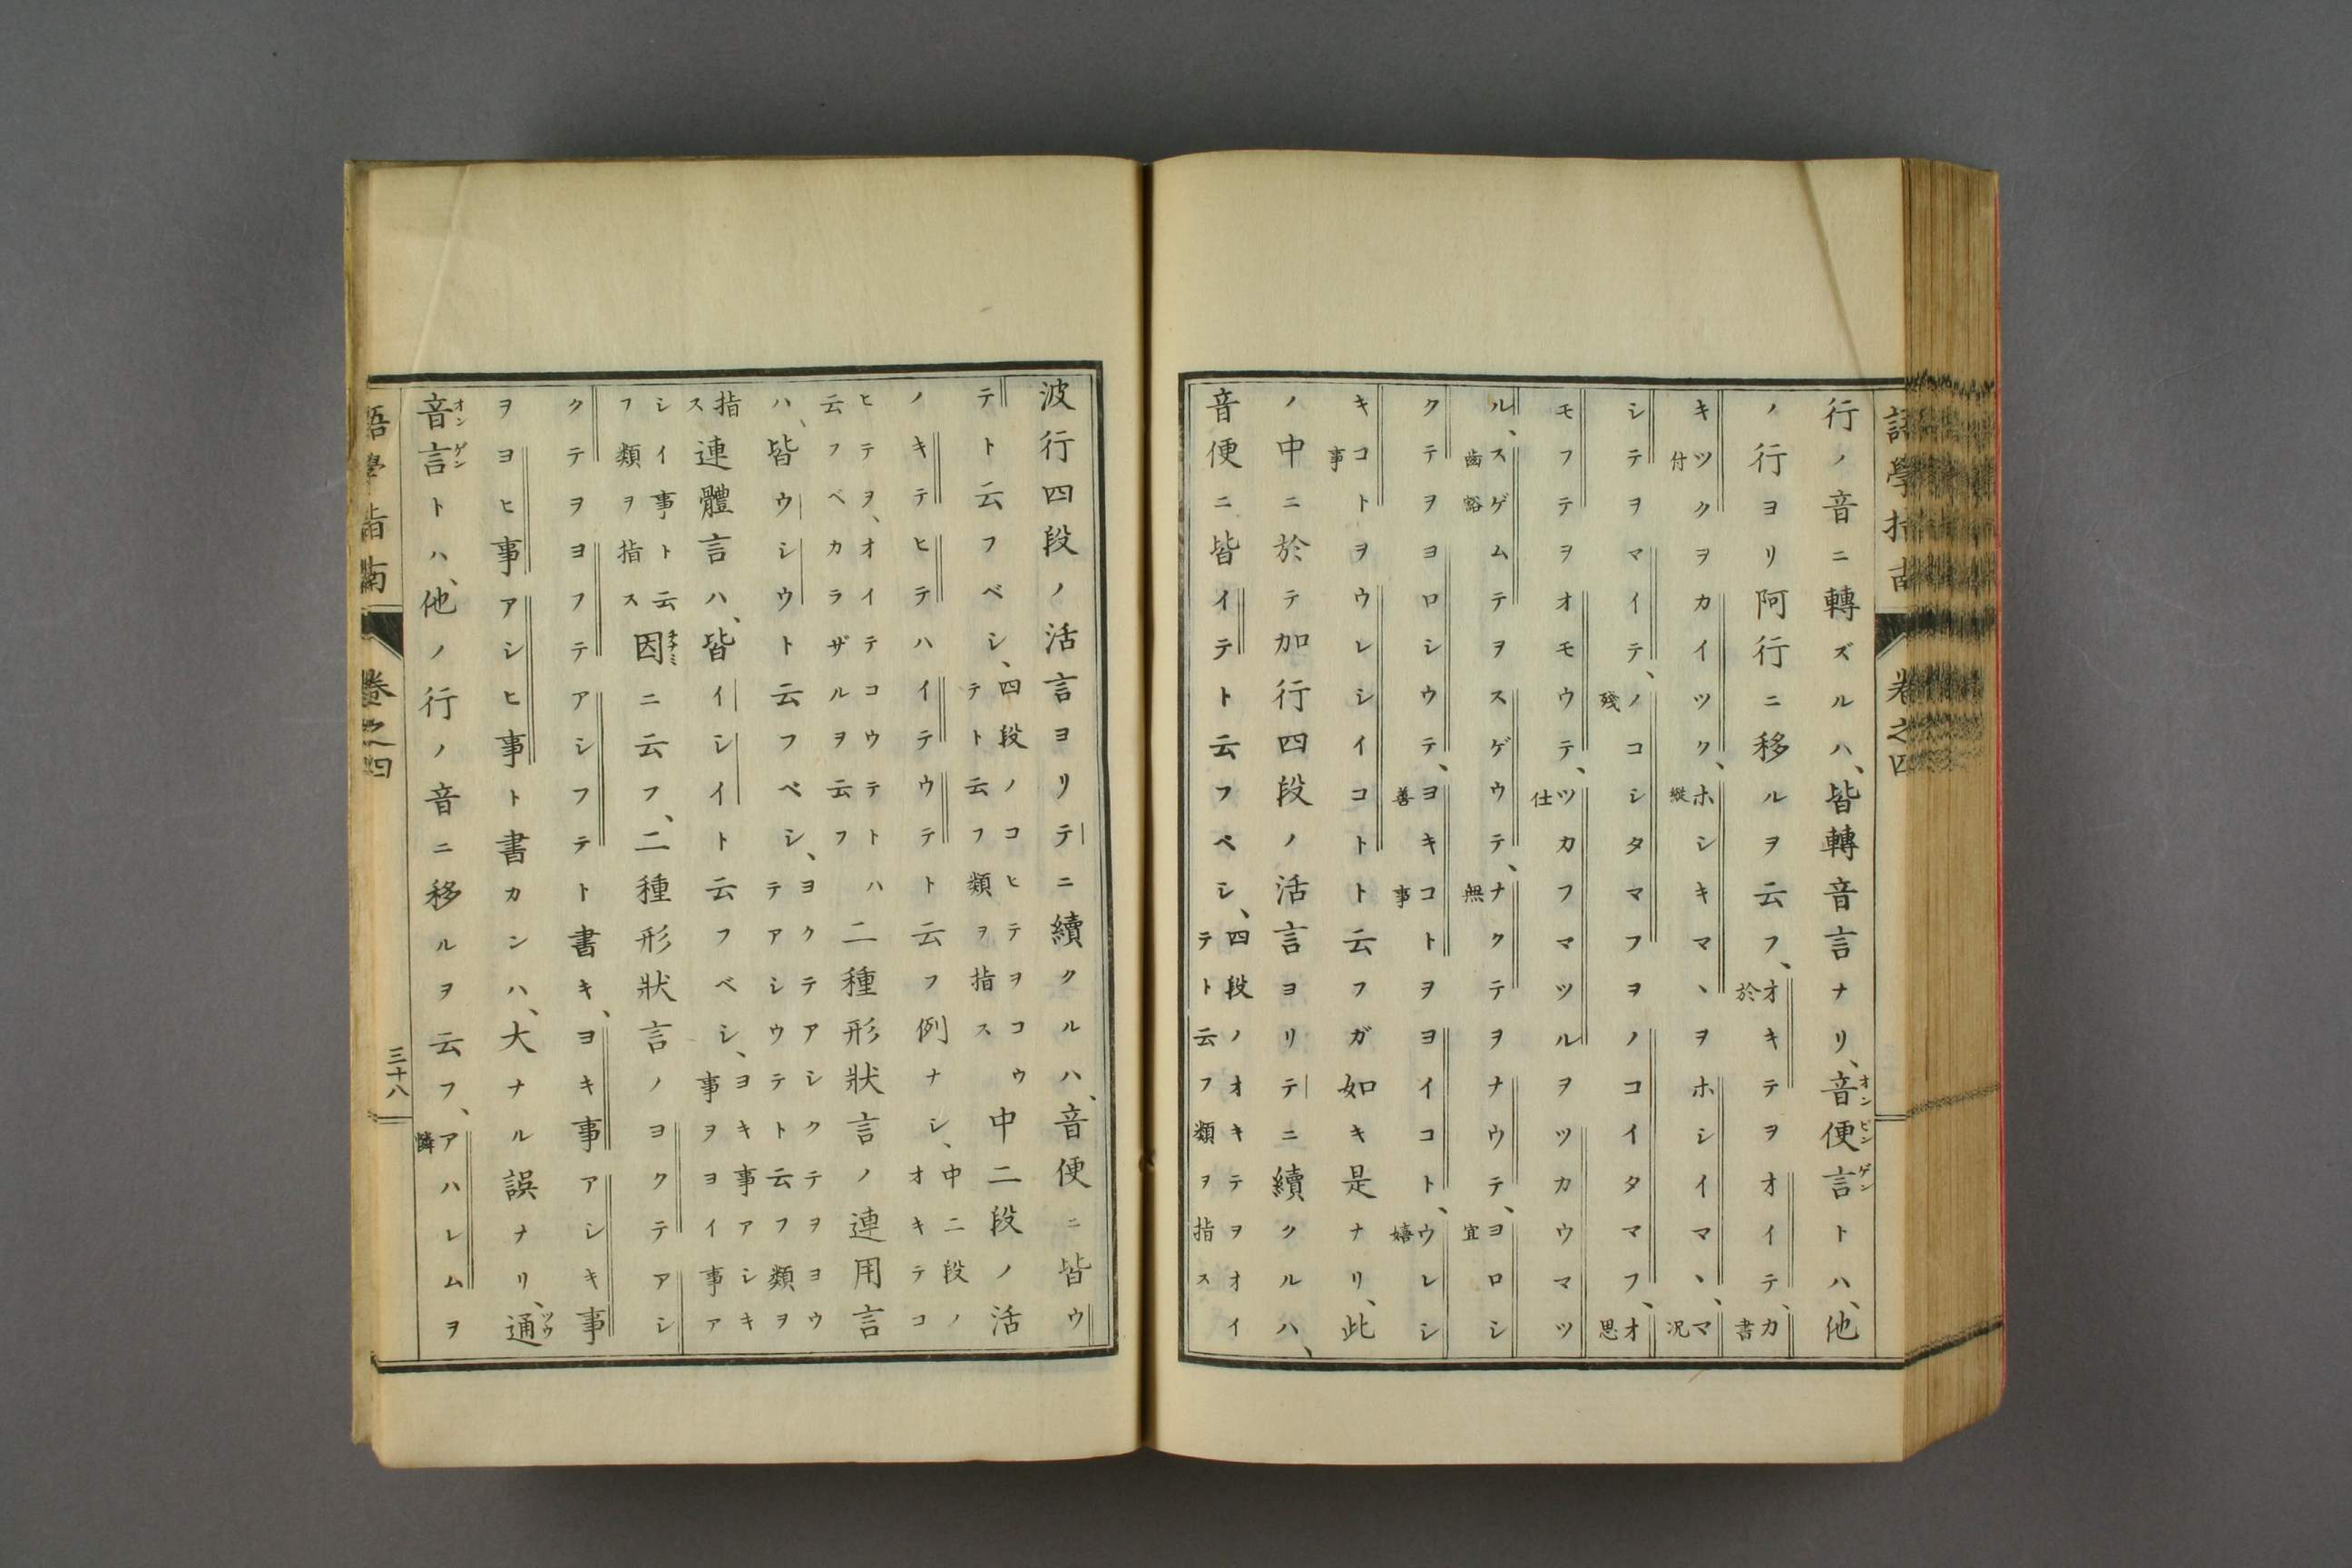 語學指南 卷之四
行ノ音ニ轉ズルハ、皆轉音言ナリ、音便言オンビンゲントハ、他
ノ行ヨリ阿行ニ移ルヲ云フ、オ於キテヲオイテ、カ書
キツ付クヲカイツク、ホ縱シキマヽヲホシイマヽ、マ况
シテヲマイテ、ノ殘コシタマフヲノコイタマフ、オ思
モフテヲオモウテ、ツ仕カフマツルヲツカウマツ
ル、ス齒ゲ豁ムテヲスゲウテ、ナ無クテヲナウテ、ヨ宜ロシ
クテヲヨロシウテ、ヨ善キコ事トヲヨイコト、ウ嬉レシ
キコ事トヲウレシイコトト云フガ如キ是ナリ、此
ノ中ニ於テ加行四段ノ活言ヨリテニ續クルハ、
音便ニ皆イテト云フベシ、四段ノオキテヲオイテト云フ類ヲ指ス
波行四段ノ活言ヨリテニ續クルハ、音便ニ皆ウ
テト云フベシ、四段ノコヒテヲコウテト云フ類ヲ指ス中二段ノ活
ノキテヒテハイテウテト云フ例ナシ、中二段ノオキテコ
ヒテヲ、オイテコウテトハ云フベカラザルヲ云フ二種形狀言ノ連用言
ハ、皆ウシウト云フベシ、ヨクテアシクテヲヨウテアシウテト云フ類ヲ
指ス連體言ハ、皆イシイト云フベシ、ヨキ事アシキ事ヲヨイ事ア
シイ事ト云フ類ヲ指ス因チナミニ云フ、二種形狀言ノヨクテアシ
クテヲヨフテアシフテト書キ、ヨキ事アシキ事
ヲヨヒ事アシヒ事ト書カンハ、大ナル誤ナリ、通ツウ
音言オンゲントハ、他ノ行ノ音ニ移ルヲ云フ、ア憐ハレムヲ
語學指南 卷之四 三十八